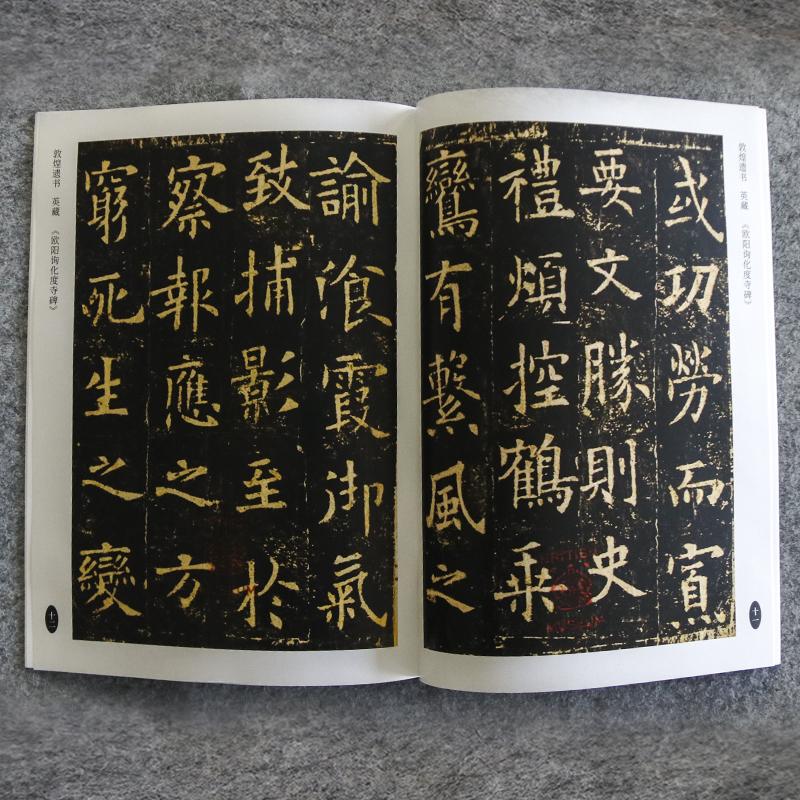 敦煌遗书 英藏 《欧阳询化度寺碑》
或功勞而寡
要文勝則史
禮煩控鶴乗
鸞有繫風之
十一
諭湌霞御氣
致捕影至於
察報應之方
窮死生之變
敦煌遗书 英藏 《欧阳询化度寺碑》
十二